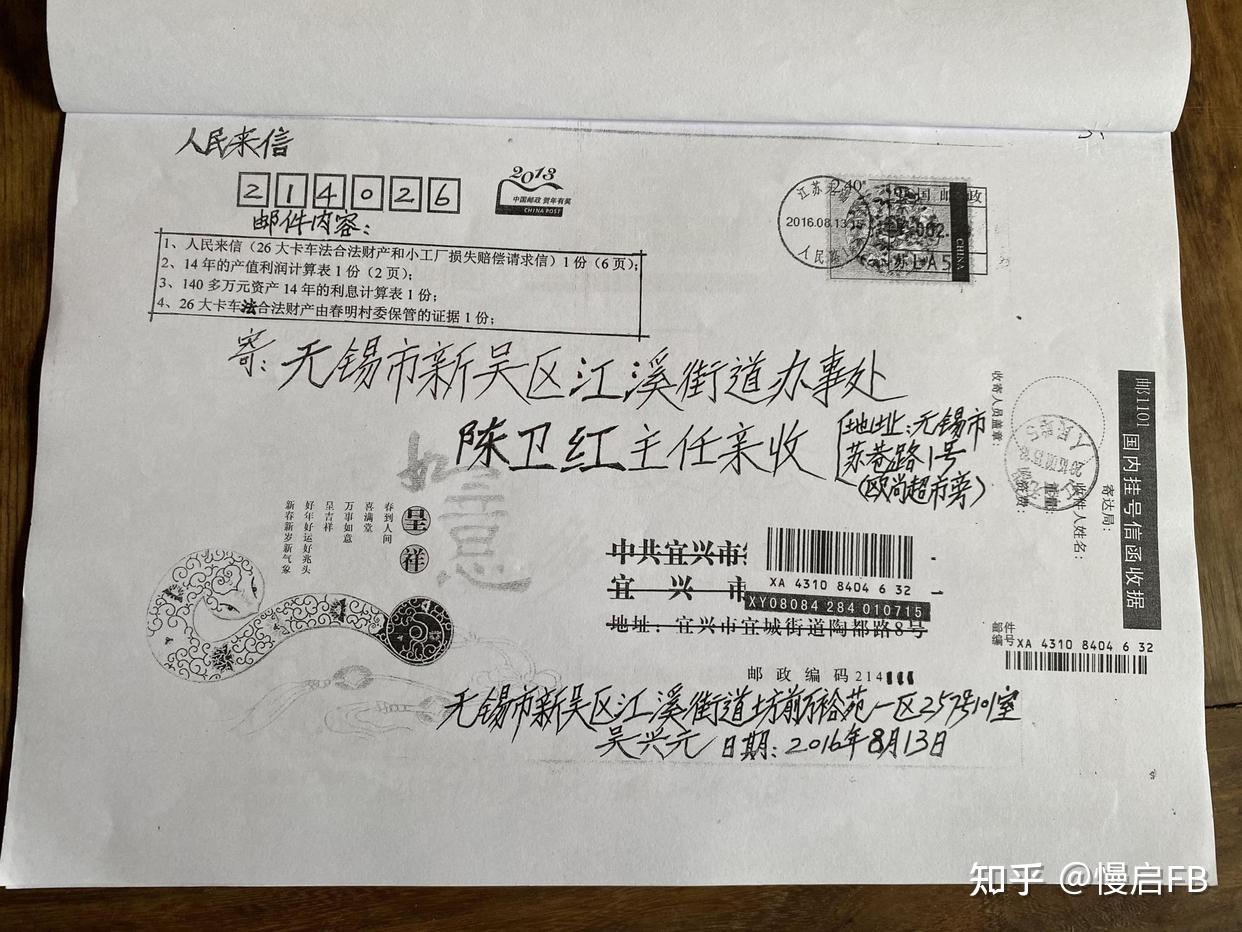 人民来信
214026
2013
中国邮政 贺年有奖
CHINA POST
2.40
中国邮政
2016.08.13
人民路
CHINA
邮件内容：
1、人民来信（26大卡车法合法财产和小工厂损失赔偿请求信）1份（6页）；
2、14年的产值利润计算表1份（2页）；
3、140多万元资产14年的利息计算表1份；
4、26大卡车法合法财产由春明村委保管的证据1份；
寄：无锡市新吴区江溪街道办事处
陈卫红主任亲收
（地址：无锡市
苏巷路1号
（欧尚超市旁）
如意
呈祥
春到人间
喜满堂
万事如意
呈吉祥
好年好运好兆头
新春新岁新气象
中共宜兴市
宜兴市
地址：宜兴市宜城街道陶都路8号
XA 4310 8404 6 32
XY08084 284 010715
邮政编码214
无锡市新吴区江溪街道坊前万裕苑一区257号101室
吴兴元 日期：2016年8月13日
邮1101 国内挂号信函收据
寄达局：
收件人姓名：
重量：
收寄人员盖章：
邮件
编号XA 4310 8404 6 32
知乎 @慢启FB